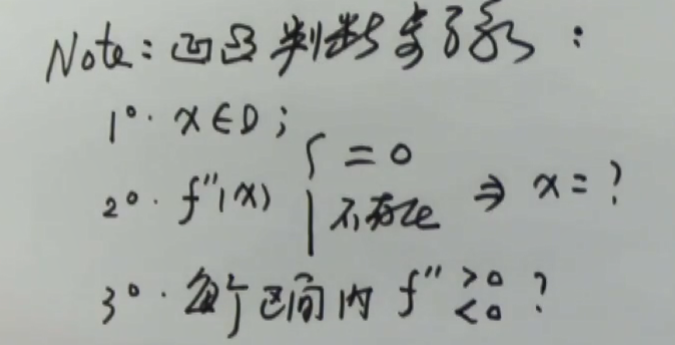 Note: 凹凸判断步了系:
1°. x∈D;
2°. f''(x) { = 0 不存在 ⇒ x = ?
3°. 每个区间内 f'' >0 <0 ?